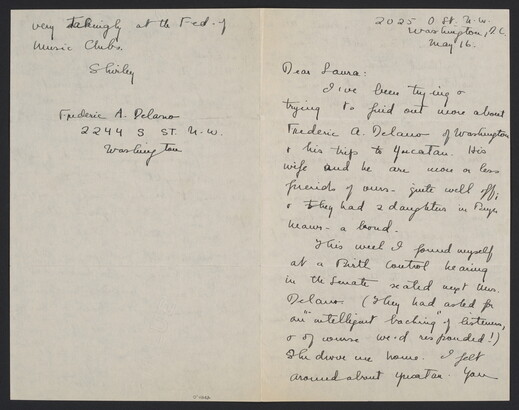 very takingly at the Fed. of
Music Clubs.
Shirley
Frederic A. Delano
2244 S St. N.W.
Washington
2025 O St. N.W.
Washington, D.C.
May 16.
Dear Laura:
I've been trying &
trying to find out more about
Frederic A. Delano of Washington
& his trip to Yucatan. His
wife and he are more or less
friends of ours - quite well off,
& they had 2 daughters in Bryn
Mawr - a bond.
This week I found myself
at a Birth Control hearing
in the Senate seated next Mrs.
Delano. (They had asked for
an "intelligent backing" of listeners,
& of course we'd responded!)
She drove me home. I felt
around about Yucatan. You